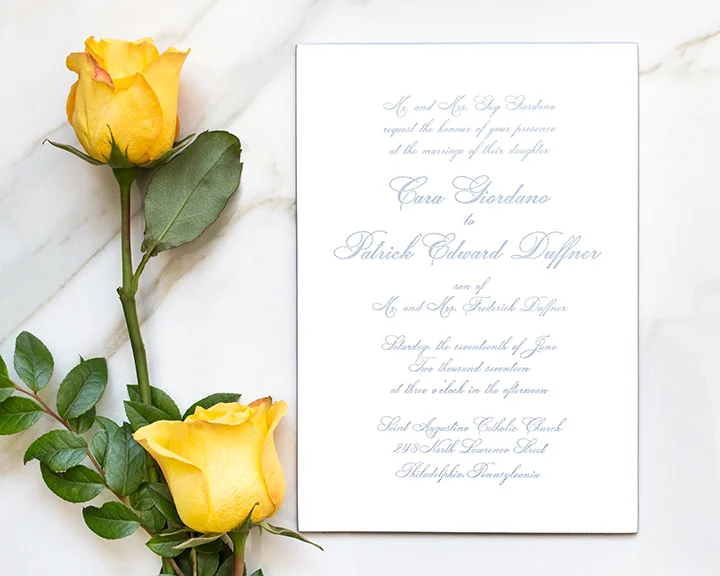 Mr. and Mrs. Guy Giordano
request the honour of your presence
at the marriage of their daughter
Cara Giordano
to
Patrick Edward Duffner
son of
Mr. and Mrs. Frederick Duffner
Saturday, the seventeenth of June
Two thousand seventeen
at three o'clock in the afternoon
Saint Augustine Catholic Church
243 North Lawrence Street
Philadelphia, Pennsylvania